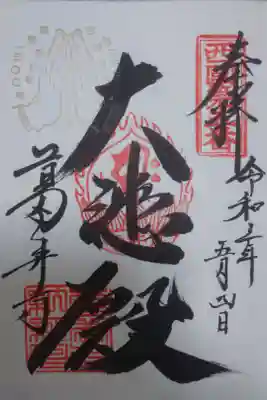 奉拝
西国第五番
令和年
五月四日
大悲殿
葛井寺